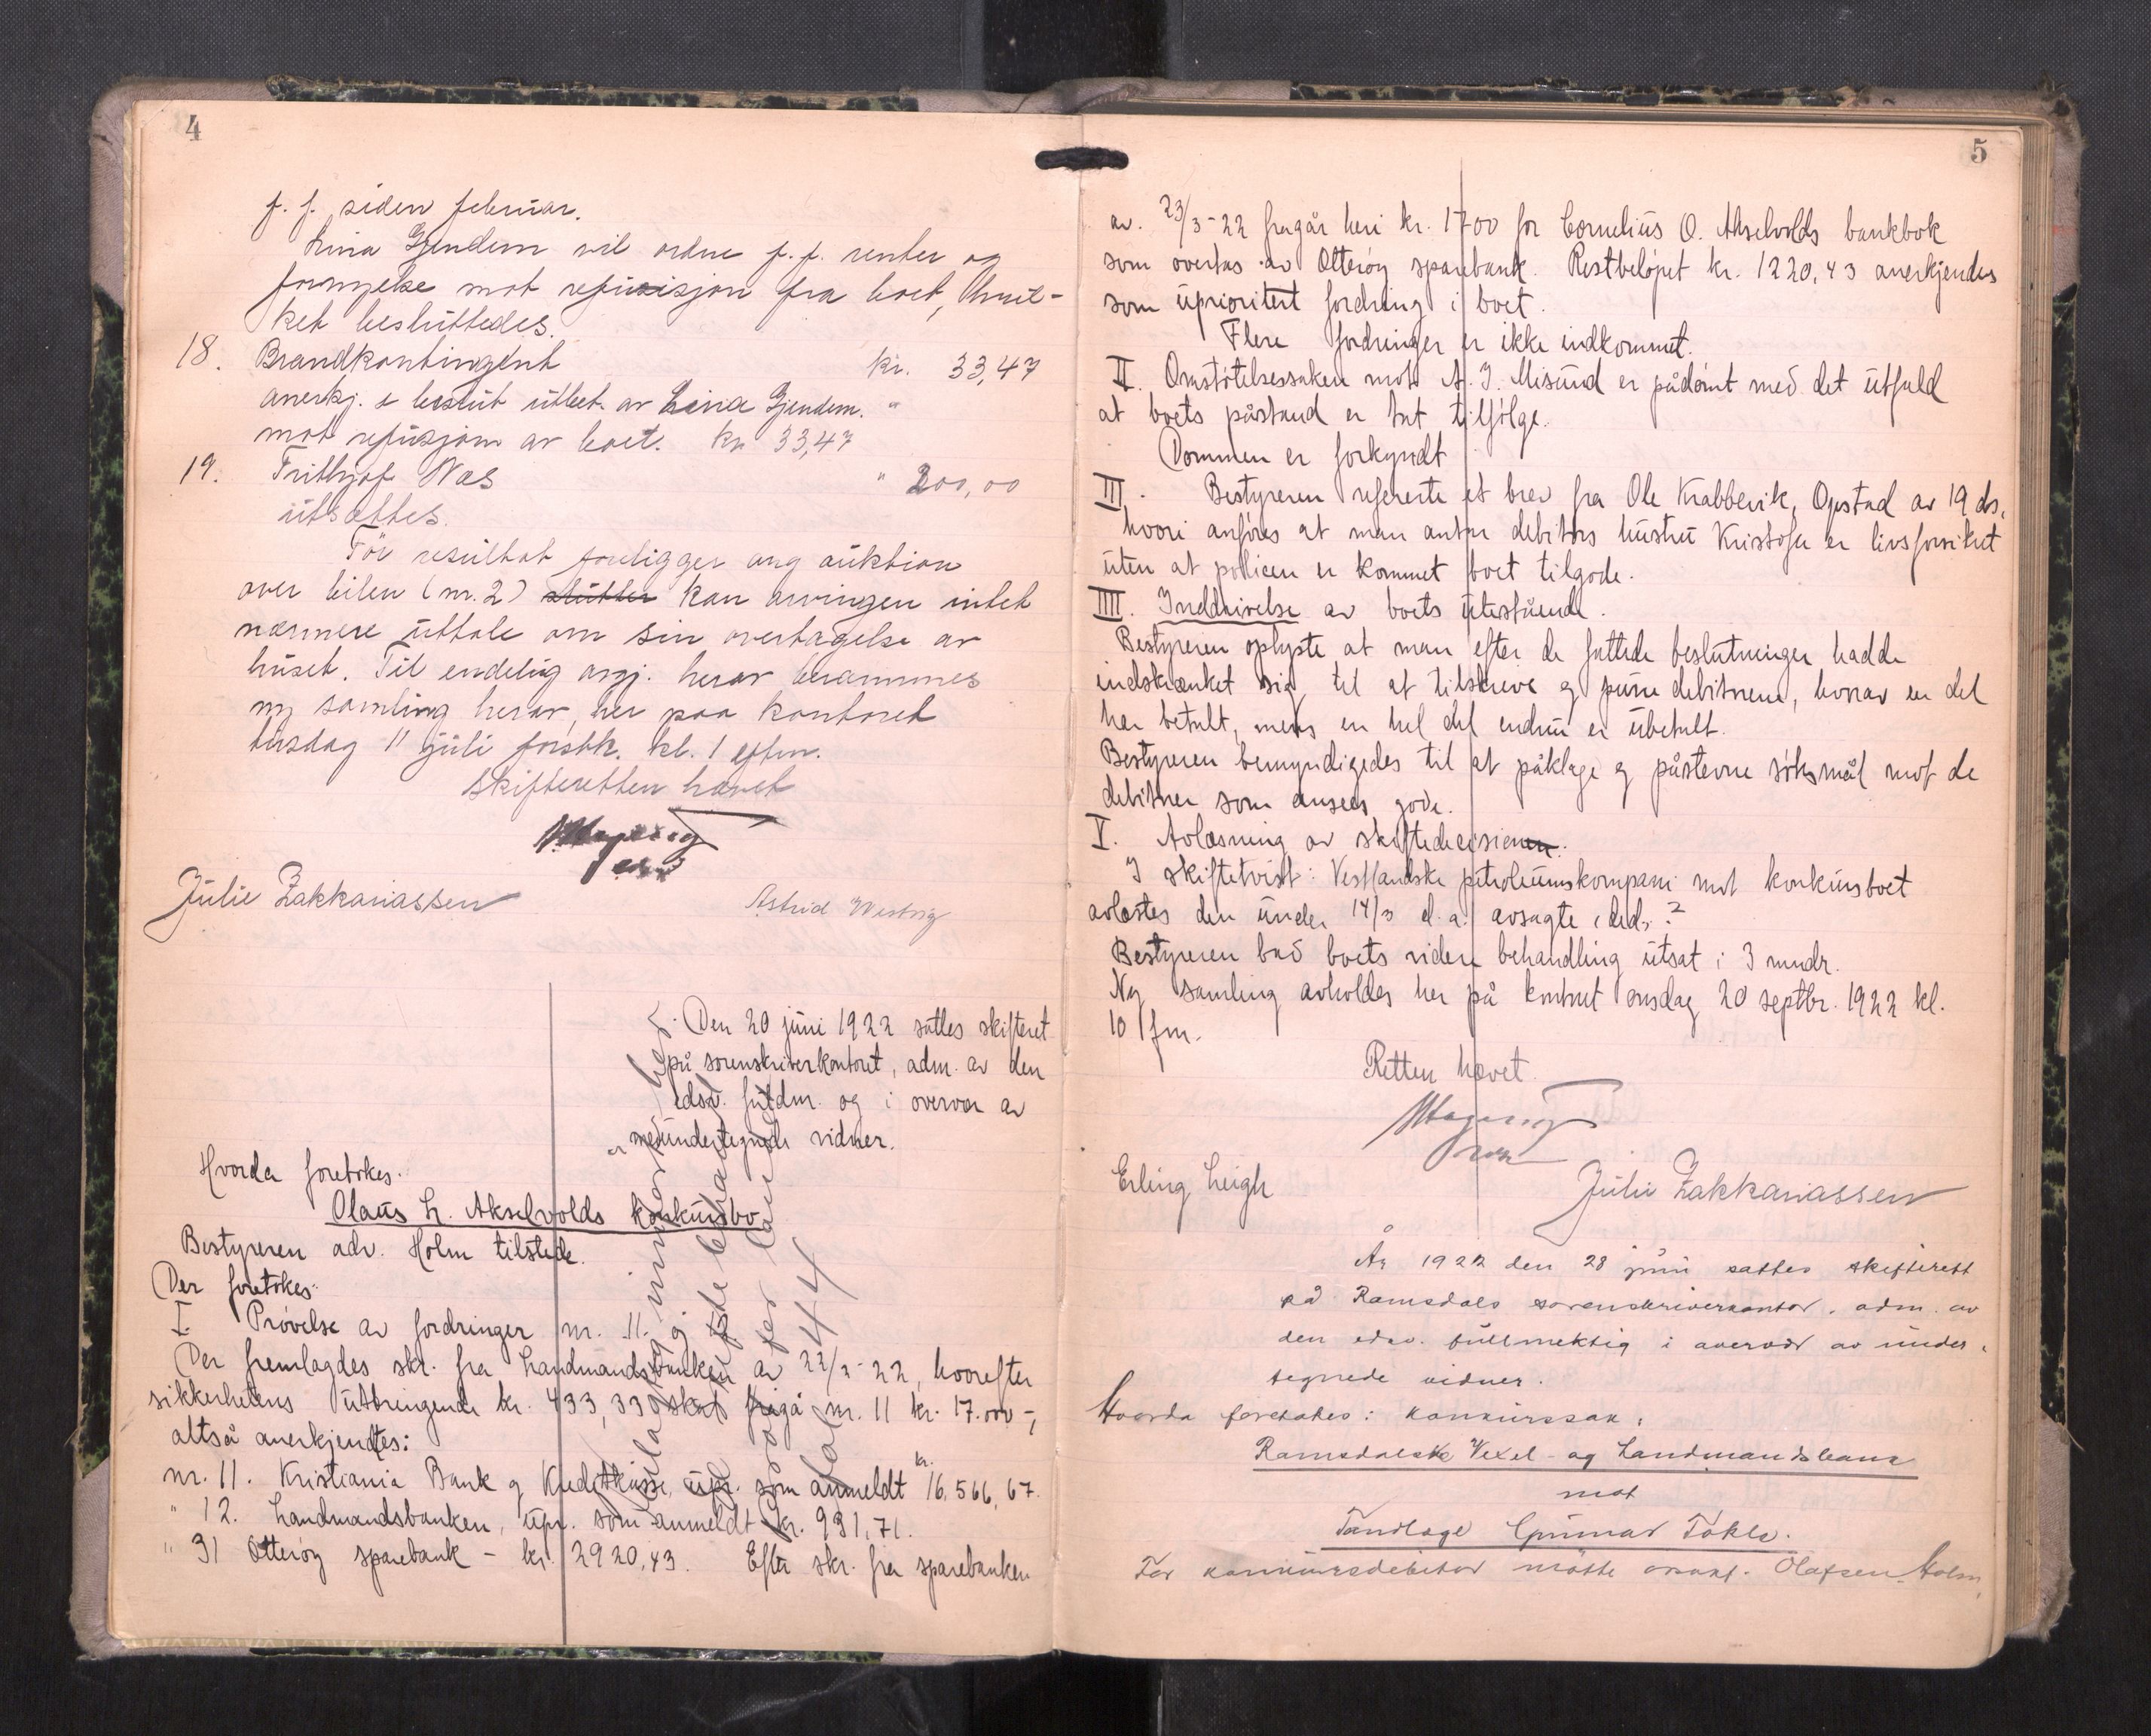 4
f. f. siden februar.
Lina Gjendem vil ordne f. f. renter og
fornyelse mot refusisjon fra boet, hvil-
ket besluttedes.
18. Brandkontingent kr. 33,47
anerkj. & beslut utbet. av Lina Gjendem. "
mot refusjon av boet. kr 33,47
19. Frithjof Næs " 200,00
utsættes.
Før resultat foreligger ang auktion
over bilen (nr. 2) kan arvingen intet
nærmere uttale om sin overtagelse av
huset. Til endelig avgj. herav berammes
ny samling herav, her paa kontoret
tirsdag 11 juli førstk. kl. 1 eftm.
Skifteretten hævet
Julie Zakkariassen
Astrid
Den 20 juni 1922 sattes skifteret
på sorenskriverkontoret, adm. av den
edsv. fuldm. og i overvær av
medundertegnede vidner.
Hvorda foretokes:
Olaus L. Akselvolds konkursbo
Bestyreren adv. Holm tilstede.
Der foretokes:
I. Prøvelse av fordringer nr. 11.
Der fremlagdes skr. fra Landmandsbanken av 22/3-22, hvorefter
sikkerhetens utbringende kr. 433,33 skal fragå nr. 11 kr. 17.000-,
altså anerkjendtes:
nr. 11. Kristiania Bank og Kreditkasse, upr. som anmeldt kr. 16.566,67.
" 12. Landmandsbanken, upr. som anmeldt kr. 931,71.
" 31 Otterøy sparebank - kr. 2920,43. Efter skr. fra sparebanken
44
5
av. 23/3-22 fragår heri kr. 1700 for Cornelius O. Akselvolds bankbok
som overtas av Otterøy sparebank. Restbeløpet kr. 1220,43 anerkjendes
som uprioritert fordring i boet.
Flere fordringer er ikke indkommet.
II. Omstøtelsessaken mot A. J. Misund er pådømt med det utfald
at boets påstand er tat tilfølge.
Dommen er forkyndt
III. Bestyreren refererte et brev fra Ole Krabbevik, Opstad av 19 ds,
hvori anføres at man antar debitors hustru Kristofa er livsforsikret
uten at policen er kommet boet tilgode.
IIII. Inddrivelse av boets utestående.
Bestyreren oplyste at man efter de fattede beslutninger hadde
indskrænket sig til at tilskrive og purre debitorene, hvorav en del
har betalt, mens en hel del endnu er ubetalt.
Bestyreren bemyndigedes til at påklage og påstevne søksmål mot de
debitorer som ansees gode.
V. Avlæsning av skiftedecisionen.
I skiftetvist: Vestlandske petroleumskompani mot konkursboet
avlæstes den under 14/3 d. a. avsagte ded. ?
Bestyreren bad boets videre behandling utsat i 3 mndr.
Ny samling avholdes her på kontoret onsdag 20 septbr. 1922 kl.
10 fm.
Retten hævet.
Erling Leigh
Julie Zakkariassen
År 1922 den 28 juni sattes skifterett
på Romsdals sorenskriverkontor, adm. av
den edsv. fullmektig i overvær av under-
tegnede vidner.
Hvorda foretokes: konkurssak:
Romsdalske Vexel- og Landmandsbank
mot
Tandlæge Gunnar Tokle.
For konkursdebitor møtte orsakf. Olafsen-Holm,